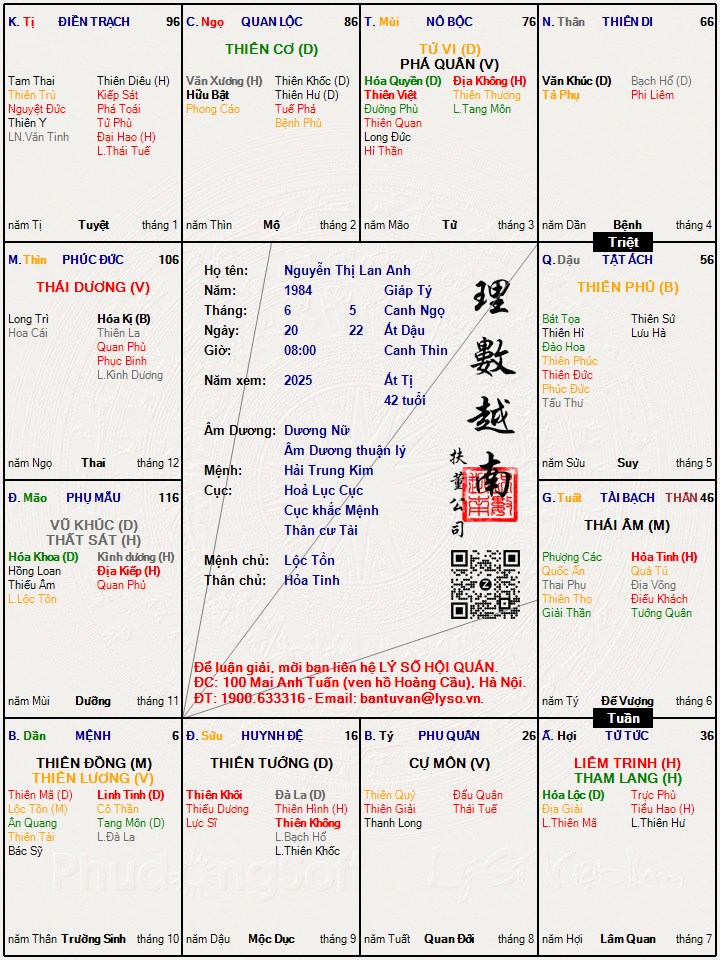 K. Tị ĐIỀN TRẠCH 96
Tam Thai
Thiên Trù
Nguyệt Đức
Thiên Y
LN.Văn Tinh
Thiên Diêu (H)
Kiếp Sát
Phá Toái
Tử Phù
Đại Hao (H)
L.Thái Tuế
năm Tị Tuyệt tháng 1
C. Ngọ QUAN LỘC 86
THIÊN CƠ (D)
Văn Xương (H)
Hữu Bật
Phong Cáo
Thiên Khốc (D)
Thiên Hư (D)
Tuế Phá
Bệnh Phù
năm Thìn Mộ tháng 2
T. Mùi NÔ BỘC 76
TỬ VI (D)
PHÁ QUÂN (V)
Hóa Quyền (D)
Thiên Việt
Đường Phù
Thiên Quan
Long Đức
Hỉ Thần
Địa Không (H)
Thiên Thương
L.Tang Môn
năm Mão Tử tháng 3
N. Thân THIÊN DI 66
Văn Khúc (D)
Tả Phụ
Bạch Hổ (D)
Phi Liêm
năm Dần Bệnh tháng 4
Triệt
M. Thìn PHÚC ĐỨC 106
THÁI DƯƠNG (V)
Long Trì
Hoa Cái
Hóa Kị (B)
Thiên La
Quan Phù
Phục Binh
L.Kình Dương
năm Ngọ Thai tháng 12
Họ tên: Nguyễn Thị Lan Anh
Năm: 1984 Giáp Tý
Tháng: 6 5 Canh Ngọ
Ngày: 20 22 Ất Dậu
Giờ: 08:00 Canh Thìn
Năm xem: 2025 Ất Tị
42 tuổi
Âm Dương: Dương Nữ
Âm Dương thuận lý
Mệnh: Hải Trung Kim
Cục: Hoả Lục Cục
Cục khắc Mệnh
Thân cư Tài
Mệnh chủ: Lộc Tồn
Thân chủ: Hỏa Tinh
理數越南
扶董公司
Z
Để luận giải, mời bạn liên hệ LÝ SỐ HỘI QUÁN.
ĐC: 100 Mai Anh Tuấn (ven hồ Hoàng Cầu), Hà Nội.
ĐT: 1900.633316 - Email: bantuvan@lyso.vn.
Q. Dậu TẬT ÁCH 56
THIÊN PHỦ (B)
Bát Tọa
Thiên Hỉ
Đào Hoa
Thiên Phúc
Thiên Đức
Phúc Đức
Tấu Thư
Thiên Sứ
Lưu Hà
năm Sửu Suy tháng 5
Đ. Mão PHỤ MẪU 116
VŨ KHÚC (D)
THẤT SÁT (H)
Hóa Khoa (D)
Hồng Loan
Thiếu Âm
L.Lộc Tồn
Kình dương (H)
Địa Kiếp (H)
Quan Phủ
năm Mùi Dưỡng tháng 11
G. Tuất TÀI BẠCH THÂN 46
THÁI ÂM (M)
Phượng Các
Quốc Ấn
Thai Phụ
Thiên Thọ
Giải Thần
Hỏa Tinh (H)
Quả Tú
Địa Võng
Điếu Khách
Tướng Quân
năm Tý Đế Vượng tháng 6
Tuần
B. Dần MỆNH 6
THIÊN ĐỒNG (M)
THIÊN LƯƠNG (V)
Thiên Mã (D)
Lộc Tồn (M)
Ân Quang
Thiên Tài
Bác Sỹ
Linh Tinh (D)
Cô Thần
Tang Môn (D)
L.Đà La
năm Thân Trường Sinh tháng 10
Đ. Sửu HUYNH ĐỆ 16
THIÊN TƯỚNG (D)
Thiên Khôi
Thiếu Dương
Lực Sĩ
Đà La (D)
Thiên Hình (H)
Thiên Không
L.Bạch Hổ
L.Thiên Khốc
năm Dậu Mộc Dục tháng 9
B. Tý PHU QUÂN 26
CỰ MÔN (V)
Thiên Quý
Thiên Giải
Thanh Long
Đẩu Quân
Thái Tuế
năm Tuất Quan Đới tháng 8
Ấ. Hợi TỬ TỨC 36
LIÊM TRINH (H)
THAM LANG (H)
Hóa Lộc (D)
Địa Giải
L.Thiên Mã
Trực Phù
Tiểu Hao (H)
L.Thiên Hư
năm Hợi Lâm Quan tháng 7
PhuđổngSoft
Lý Số Việt Nam